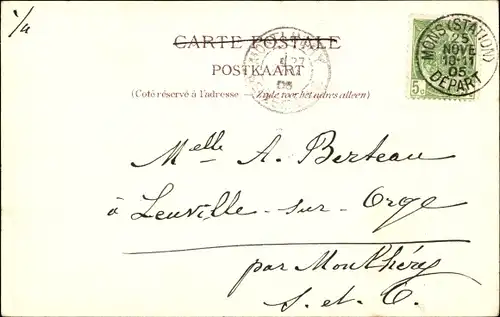 1/a
CARTE POSTALE
POSTKAART
(Coté réservé à l'adresse — Zyde voor het adres alleen)
MONS (STATION)
25
NOVE
10-11
05
DEPART
5c
Melle A. Berteau
à Leuville-sur-Orge
par Montlhéry
S. et O.